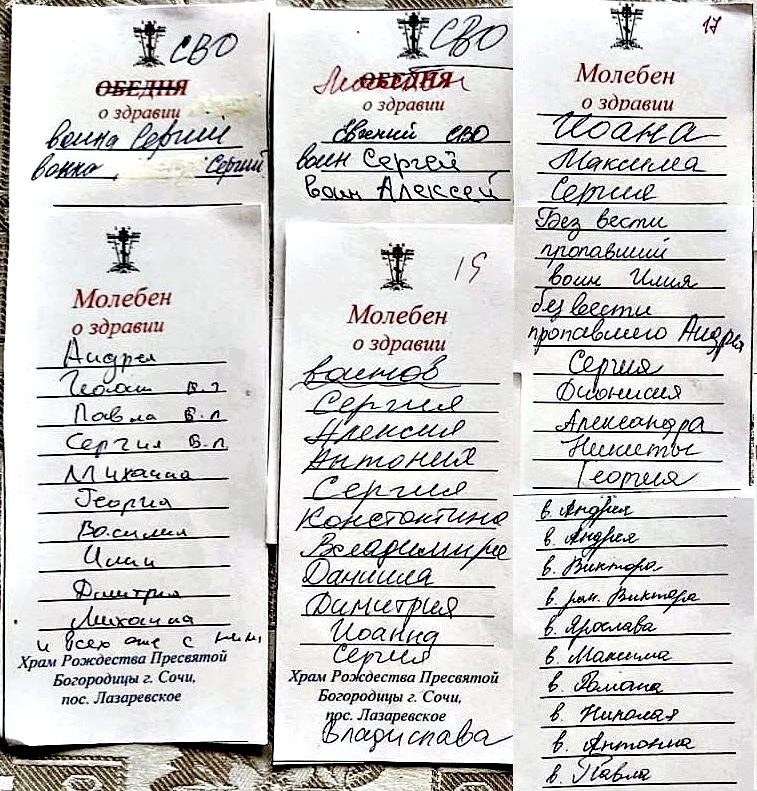 СВО
ОБЕДНЯ
о здравии
воина Сергий
воина Сергий
Молебен
о здравии
Андрея
Иоан б.п
Павла б.п
Сергия б.п
Михаила
Георгия
Василия
Илии
Дмитрия
Михаила
и всех оже с ними
Храм Рождества Пресвятой
Богородицы г. Сочи,
пос. Лазаревское
СВО
Молебен
ОБЕДНЯ
о здравии
Евгений СВО
воин Сергей
воин Алексей
Молебен
15
о здравии
воинов
Сергия
Алексия
Антония
Сергия
Константина
Владимира
Даниила
Димитрия
Иоанна
Сергия
Храм Рождества Пресвятой
Богородицы г. Сочи,
пос. Лазаревское
Владислава
17
Молебен
о здравии
Иоана
Максима
Сергия
Без вести
пропавший
воин Илия
без вести
пропавшего Андрея
Сергия
Дионисия
Александра
Никиты
Георгия
в. Андрея
в. Андрея
в. Виктора
в. ран. Виктора
в. Ярослава
в. Максима
в. Романа
в. Николая
в. Антония
в. Павла